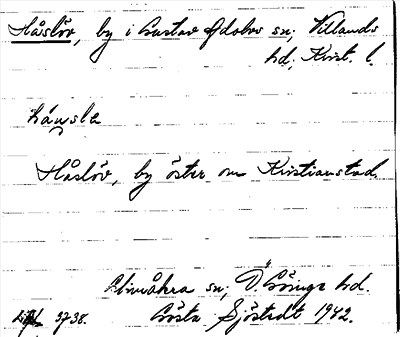 Håslöv, by i Gustav Adolvs sn; Villands
hd; Krist. l.
håusle
Håslöv, by öster om Kristianstad.
Glimåkra sn, Ö. Göinge hd.
3738. Gösta Sjöstedt 1942.